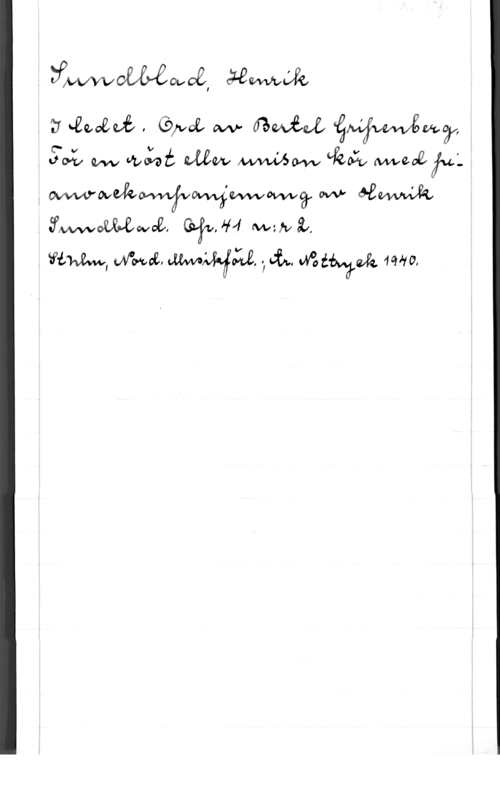 Sundblad, Henrik
I ledet. Ord av Bertel Gripenberg.
För en röst eller unison kör med pi-
anoackompanjemang av Henrik
Sundblad. Op. 41 n:r 2.
Sthlm, Nord. Musikförl.; tr. Nottryck 1940.